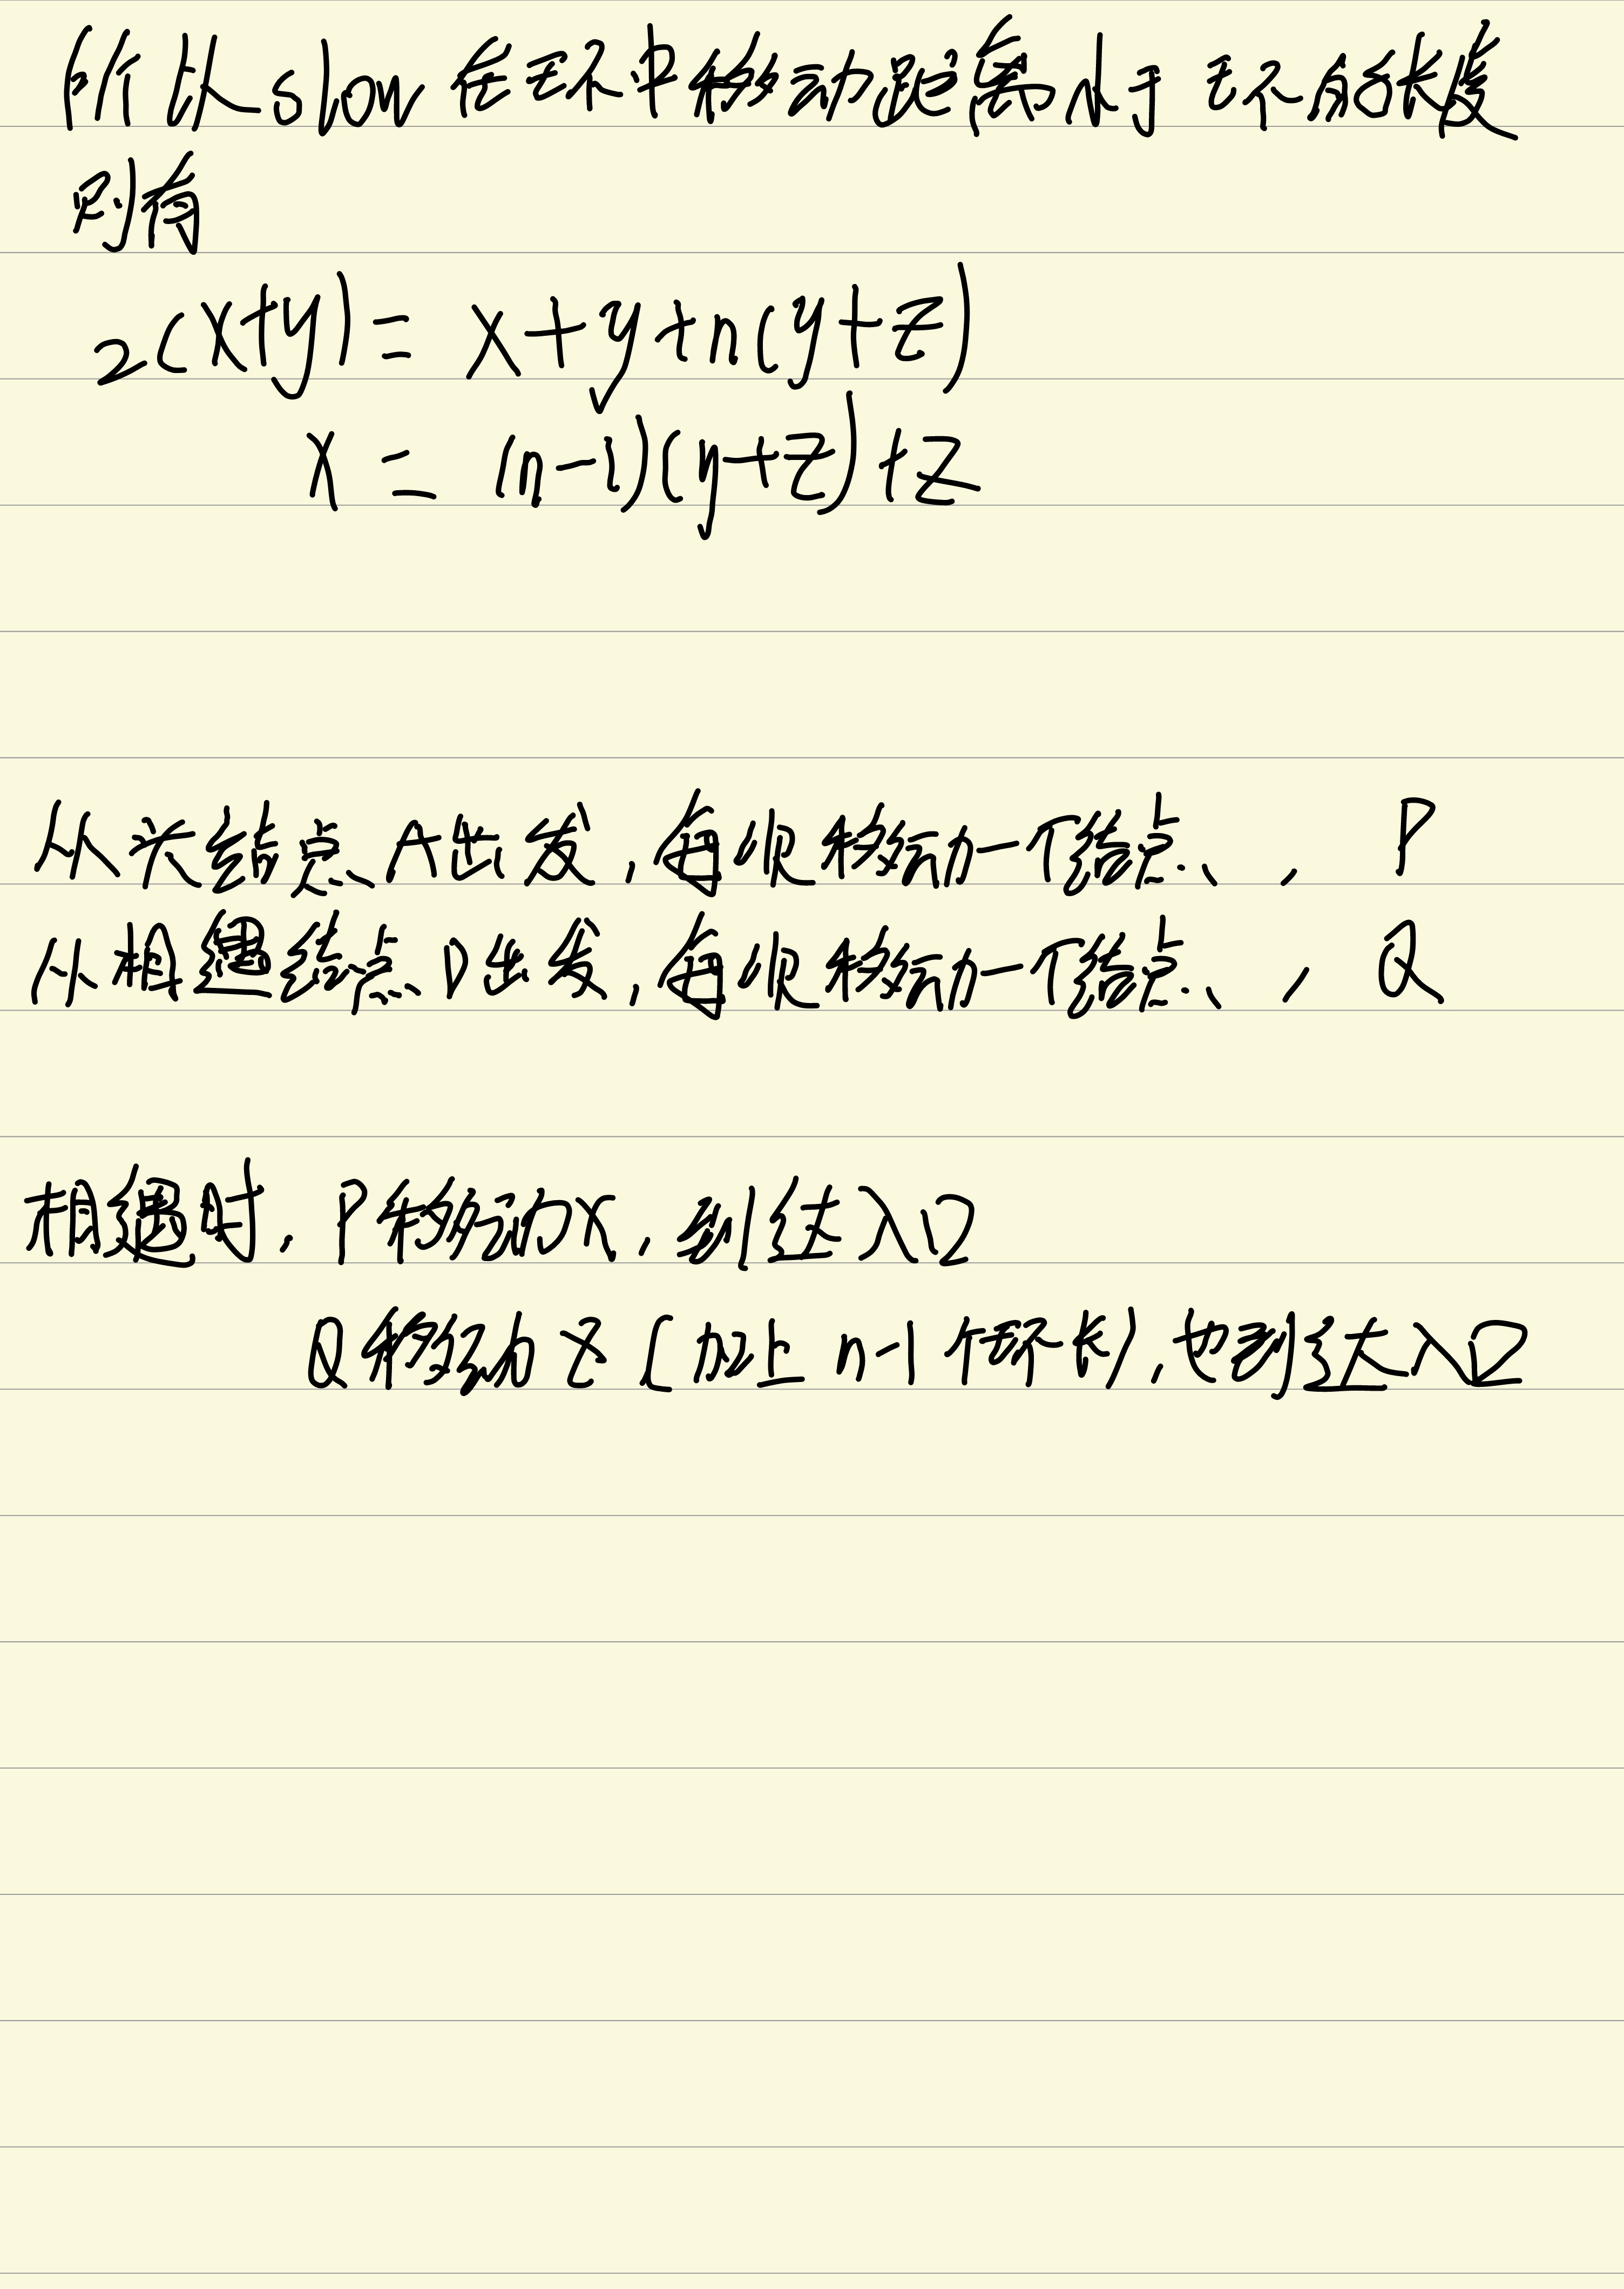 所以slow在环中移动距离小于环的长度
则有
2(x+y)= x+y+n(y+z)
x = (n-1)(y+z)+z
从头结点A出发,每次移动一个结点、, P
从相遇结点D出发,每次移动一个结点、, Q
相遇时,P移动x,到达入口
Q移动z(加上n-1个环长),也到达入口